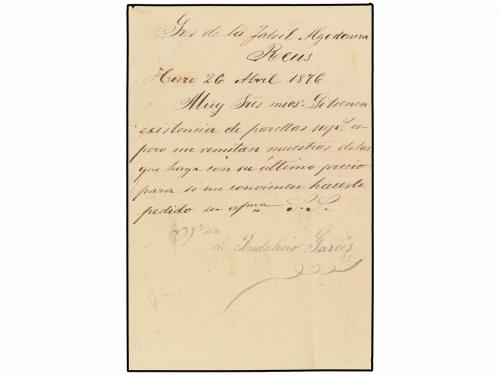 Sres de la Fabril Algodonera
Reus
26 Abril 1876
Muy Sres mios: Si tienen
existencia de parellas es-
pero me remitan muestras de las
que haya con su último precio
para si me convienen hacerle
pedido su afmo S. S.
de Indalecio Garcés